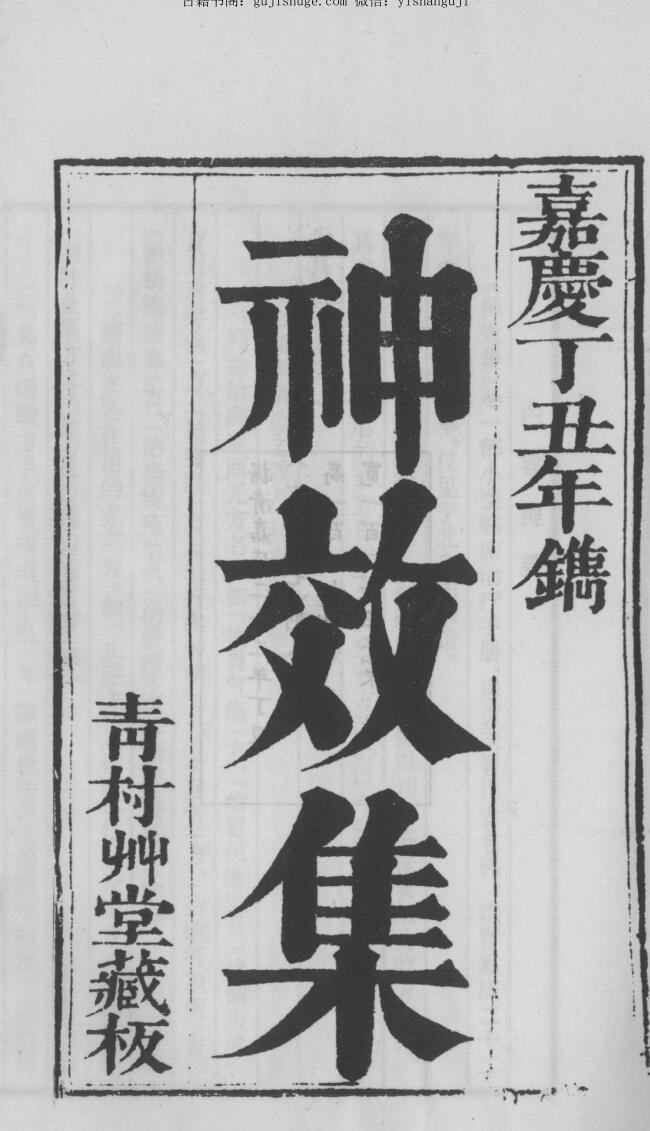 古籍书阁：gujishuge.com 微信：yishanguji
嘉慶丁丑年鐫
神效集
青村艸堂藏板